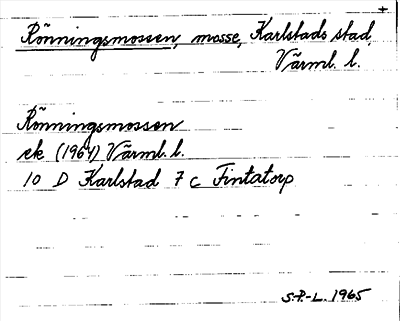 Rönningsmossen, mosse, Karlstads stad,
Värml. l.
Rönningsmossen
ek (1964) Värml. l.
10 D Karlstad 7 c Fintatorp
S.P.-L. 1965